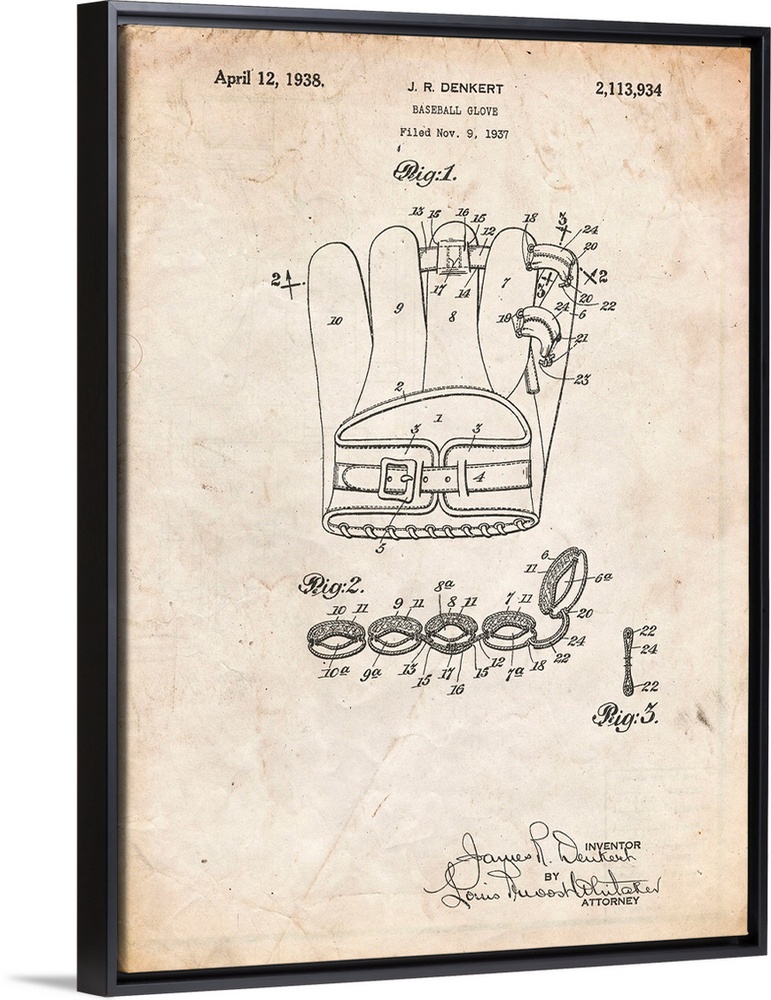 April 12, 1938.
J. R. DENKERT
2,113,934
BASEBALL GLOVE
Filed Nov. 9, 1937
Fig:1.
13 15 16 15 12 18 3 24 20
2 17 14 7 3 2
20 22
10 9 8 19 24 6
21
23
2
1
3 3
4
5
Fig:2.
8a 6
11 6a
10 11 9 11 8 11 7 11
20
10a 9a 13 15 17 16 15 12 7a 18 22 24
22
24
22
Fig:3.
James R. Denkert
INVENTOR
BY
Louis Prevost Whitaker
ATTORNEY